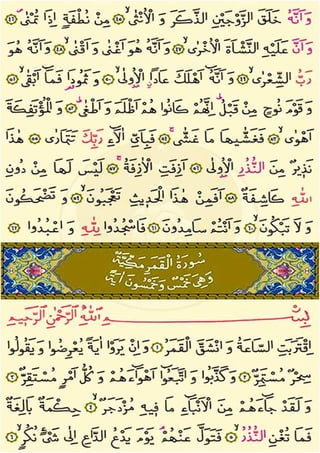 وَاَنَّهُ خَلَقَ الزَّوْجَيْنِ الذَّكَرَ وَ الْاُنْثٰىۙ ﴿٤٥﴾ مِنْ نُطْفَةٍ اِذَا تُمْنٰىۖ ﴿٤٦﴾
وَ اَنَّ عَلَيْهِ النَّشْاَةَ الْاُخْرٰىۙ ﴿٤٧﴾ وَ اَنَّهُ هُوَ اَغْنٰى وَ اَقْنٰىۙ ﴿٤٨﴾ وَ اَنَّهُ هُوَ
رَبُّ الشِّعْرٰىۙ ﴿٤٩﴾ وَ اَنَّهُٓ اَهْلَكَ عَادًاۨ الْاُو۫لٰىۙ ﴿٥٠﴾ وَ ثَمُودَا۬ فَمَٓا اَبْقٰىۙ ﴿٥١﴾
وَ قَوْمَ نُوحٍ مِنْ قَبْلُۜ اِنَّهُمْ كَانُوا هُمْ اَظْلَمَ وَ اَطْغٰىۜ ﴿٥٢﴾ وَ الْمُؤْتَفِكَةَ
اَهْوٰىۙ ﴿٥٣﴾ فَغَشّٰيهَا مَا غَشّٰىۚ ﴿٥٤﴾ فَبِاَيِّ اٰلَٓاءِ رَبِّكَ تَتَمَارٰى ﴿٥٥﴾ هٰذَا
نَذِيرٌ مِنَ النُّذُرِ الْاُو۫لٰى ﴿٥٦﴾ اَزِفَتِ الْاٰزِفَةُۚ ﴿٥٧﴾ لَيْسَ لَهَا مِنْ دُونِ
اللّٰهِ كَاشِفَةٌۜ ﴿٥٨﴾ اَفَمِنْ هٰذَا الْحَدِيثِ تَعْجَبُونَۙ ﴿٥٩﴾ وَ تَضْحَكُونَ
وَ لَا تَبْكُونَۙ ﴿٦٠﴾ وَ اَنْتُمْ سَامِدُونَ ﴿٦١﴾ فَاسْجُدُوا لِلّٰهِ وَ اعْبُدُوا ﴿٦٢﴾
سُورَةُ الْقَمَرِ مَكِّيَّةٌ
وَهِيَ خَمْسٌ وَخَمْسُونَ اٰيَةً
بِسْــــــمِ اللّٰهِ الرَّحْمٰنِ الرَّحِيمِ
اِقْتَرَبَتِ السَّاعَةُ وَ انْشَقَّ الْقَمَرُ ﴿١﴾ وَ اِنْ يَرَوْا اٰيَةً يُعْرِضُوا وَ يَقُولُوا
سِحْرٌ مُسْتَمِرٌّ ﴿٢﴾ وَ كَذَّبُوا وَ اتَّبَعُٓوا اَهْوَٓاءَهُمْ وَ كُلُّ اَمْرٍ مُسْتَقِرٌّ ﴿٣﴾
وَ لَقَدْ جَٓاءَهُمْ مِنَ الْاَنْبَٓاءِ مَا فِيهِ مُزْدَجَرٌۙ ﴿٤﴾ حِكْمَةٌ بَالِغَةٌ
فَمَا تُغْنِ النُّذُرُۙ ﴿٥﴾ فَتَوَلَّ عَنْهُمْۢ يَوْمَ يَدْعُ الدَّاعِ اِلٰى شَيْءٍ نُكُرٍۙ ﴿٦﴾